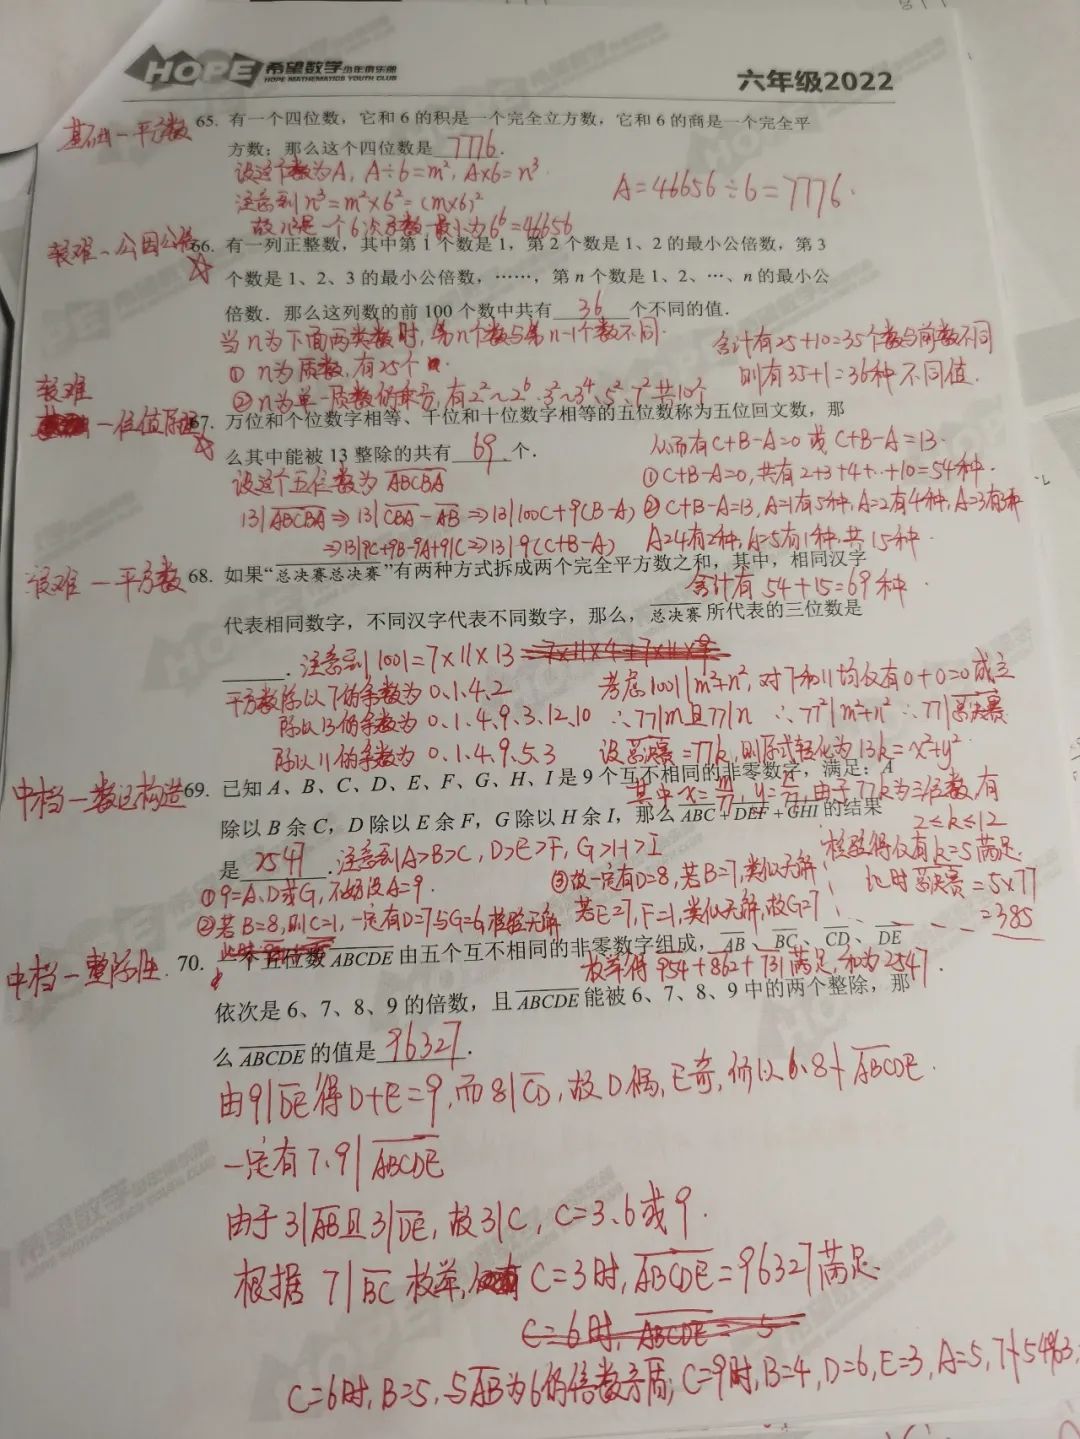 HOPE 希望数学少年俱乐部
HOPE MATHEMATICS YOUTH CLUB
六年级2022
基础一平方数
65. 有一个四位数，它和 6 的积是一个完全立方数，它和 6 的商是一个完全平
方数；那么这个四位数是 7776 .
设这个数为A, A÷6=m², A×6=n³.
注意到 n³=m²×6²=(m×6)²
故 n³是一个6次方数, 最小为6⁶=46656
A=46656÷6=7776.
较难一公因公倍
66. 有一列正整数，其中第 1 个数是 1，第 2 个数是 1、2 的最小公倍数，第 3
个数是 1、2、3 的最小公倍数，……，第 n 个数是 1、2、…、n 的最小公
倍数．那么这列数的前 100 个数中共有 36 个不同的值．
当 n 为下面两类数时, 第n个数与第n-1个数不同.
① n为质数, 有25个
② n为单一质数的乘方, 有2²~2⁶、3²~3⁴、5²、7² 共10个
合计有25+10=35个数与前数不同
则有35+1=36种不同值.
较难
一位值原理
67. 万位和个位数字相等、千位和十位数字相等的五位数称为五位回文数，那
么其中能被 13 整除的共有 69 个．
设这个五位数为 ABCBA
13|ABCBA ⇒ 13|CBA-AB ⇒ 13|100C+9(B-A)
⇒ 13|9C+9B-9A+91C ⇒ 13|9(C+B-A)
从而有 C+B-A=0 或 C+B-A=13.
① C+B-A=0, 共有 2+3+4+…+10=54种.
② C+B-A=13, A=1有5种, A=2有4种, A=3有3种
A=4有2种, A=5有1种, 共15种.
合计有 54+15=69种.
较难一平方数
68. 如果“总决赛总决赛”有两种方式拆成两个完全平方数之和，其中，相同汉字
代表相同数字，不同汉字代表不同数字，那么，总决赛所代表的三位数是
.
注意到 1001=7×11×13
平方数除以7的余数为 0、1、4、2
除以13的余数为 0、1、4、9、3、12、10
除以11的余数为 0、1、4、9、5、3
考虑1001|m²+n², 对7和11均仅有0+0=0成立
∴77|m且77|n ∴77²|m²+n² ∴77|总决赛
设总决赛=77k, 则原式转化为13k=x²+y²
其中 x=m/77, y=n/77, 由于77k为三位数, 有
2≤k≤12
检验得仅有k=5满足.
此时总决赛=5×77
=385
中档一数论构造
69. 已知 A、B、C、D、E、F、G、H、I 是 9 个互不相同的非零数字，满足：A
除以 B 余 C，D 除以 E 余 F，G 除以 H 余 I，那么 ABC+DEF+GHI 的结果
是 2547 .
注意到A>B>C, D>E>F, G>H>I
① 9=A、D或G, 不妨设A=9.
② 若B=8, 则C=1, 一定有D=7与G=6, 检验无解
③ 故一定有D=8, 若B=7, 类似无解;
若E=7, F=1, 类似无解, 故G=7;
枚举得 954+862+731满足, 和为2547.
中档一整除性
70. 一个五位数 ABCDE 由五个互不相同的非零数字组成，AB、BC、CD、DE
依次是 6、7、8、9 的倍数，且 ABCDE 能被 6、7、8、9 中的两个整除，那
么 ABCDE 的值是 96327 .
由9|DE得D+E=9, 而8|CD, 故D偶, E奇, 所以6、8∤ABCDE.
一定有 7、9|ABCDE
由于 3|AB且3|DE, 故3|C, C=3、6或9.
根据 7|BC 枚举, C=3时, ABCDE=96327满足.
C=6时, ABCDE= 5
C=6时, B=5, 与AB为6的倍数矛盾; C=9时, B=4, D=6, E=3, A=5, 7∤54963.